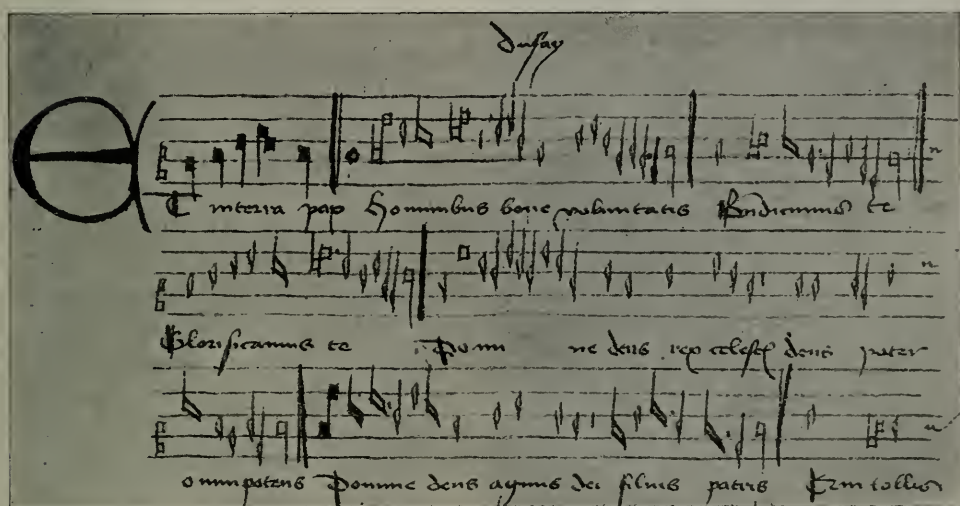 dufay
Et in terra pax Hominibus bone voluntatis Bndicimus te
Glorificamus te Domi ne deus rex celestꝭ deus pater
omnipotens Domine deus agnus dei filius patris Qui tollis